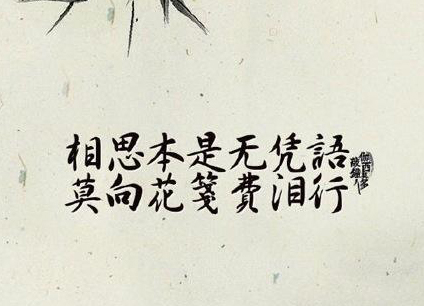 相思本是无凭語
莫向花箋費泪行